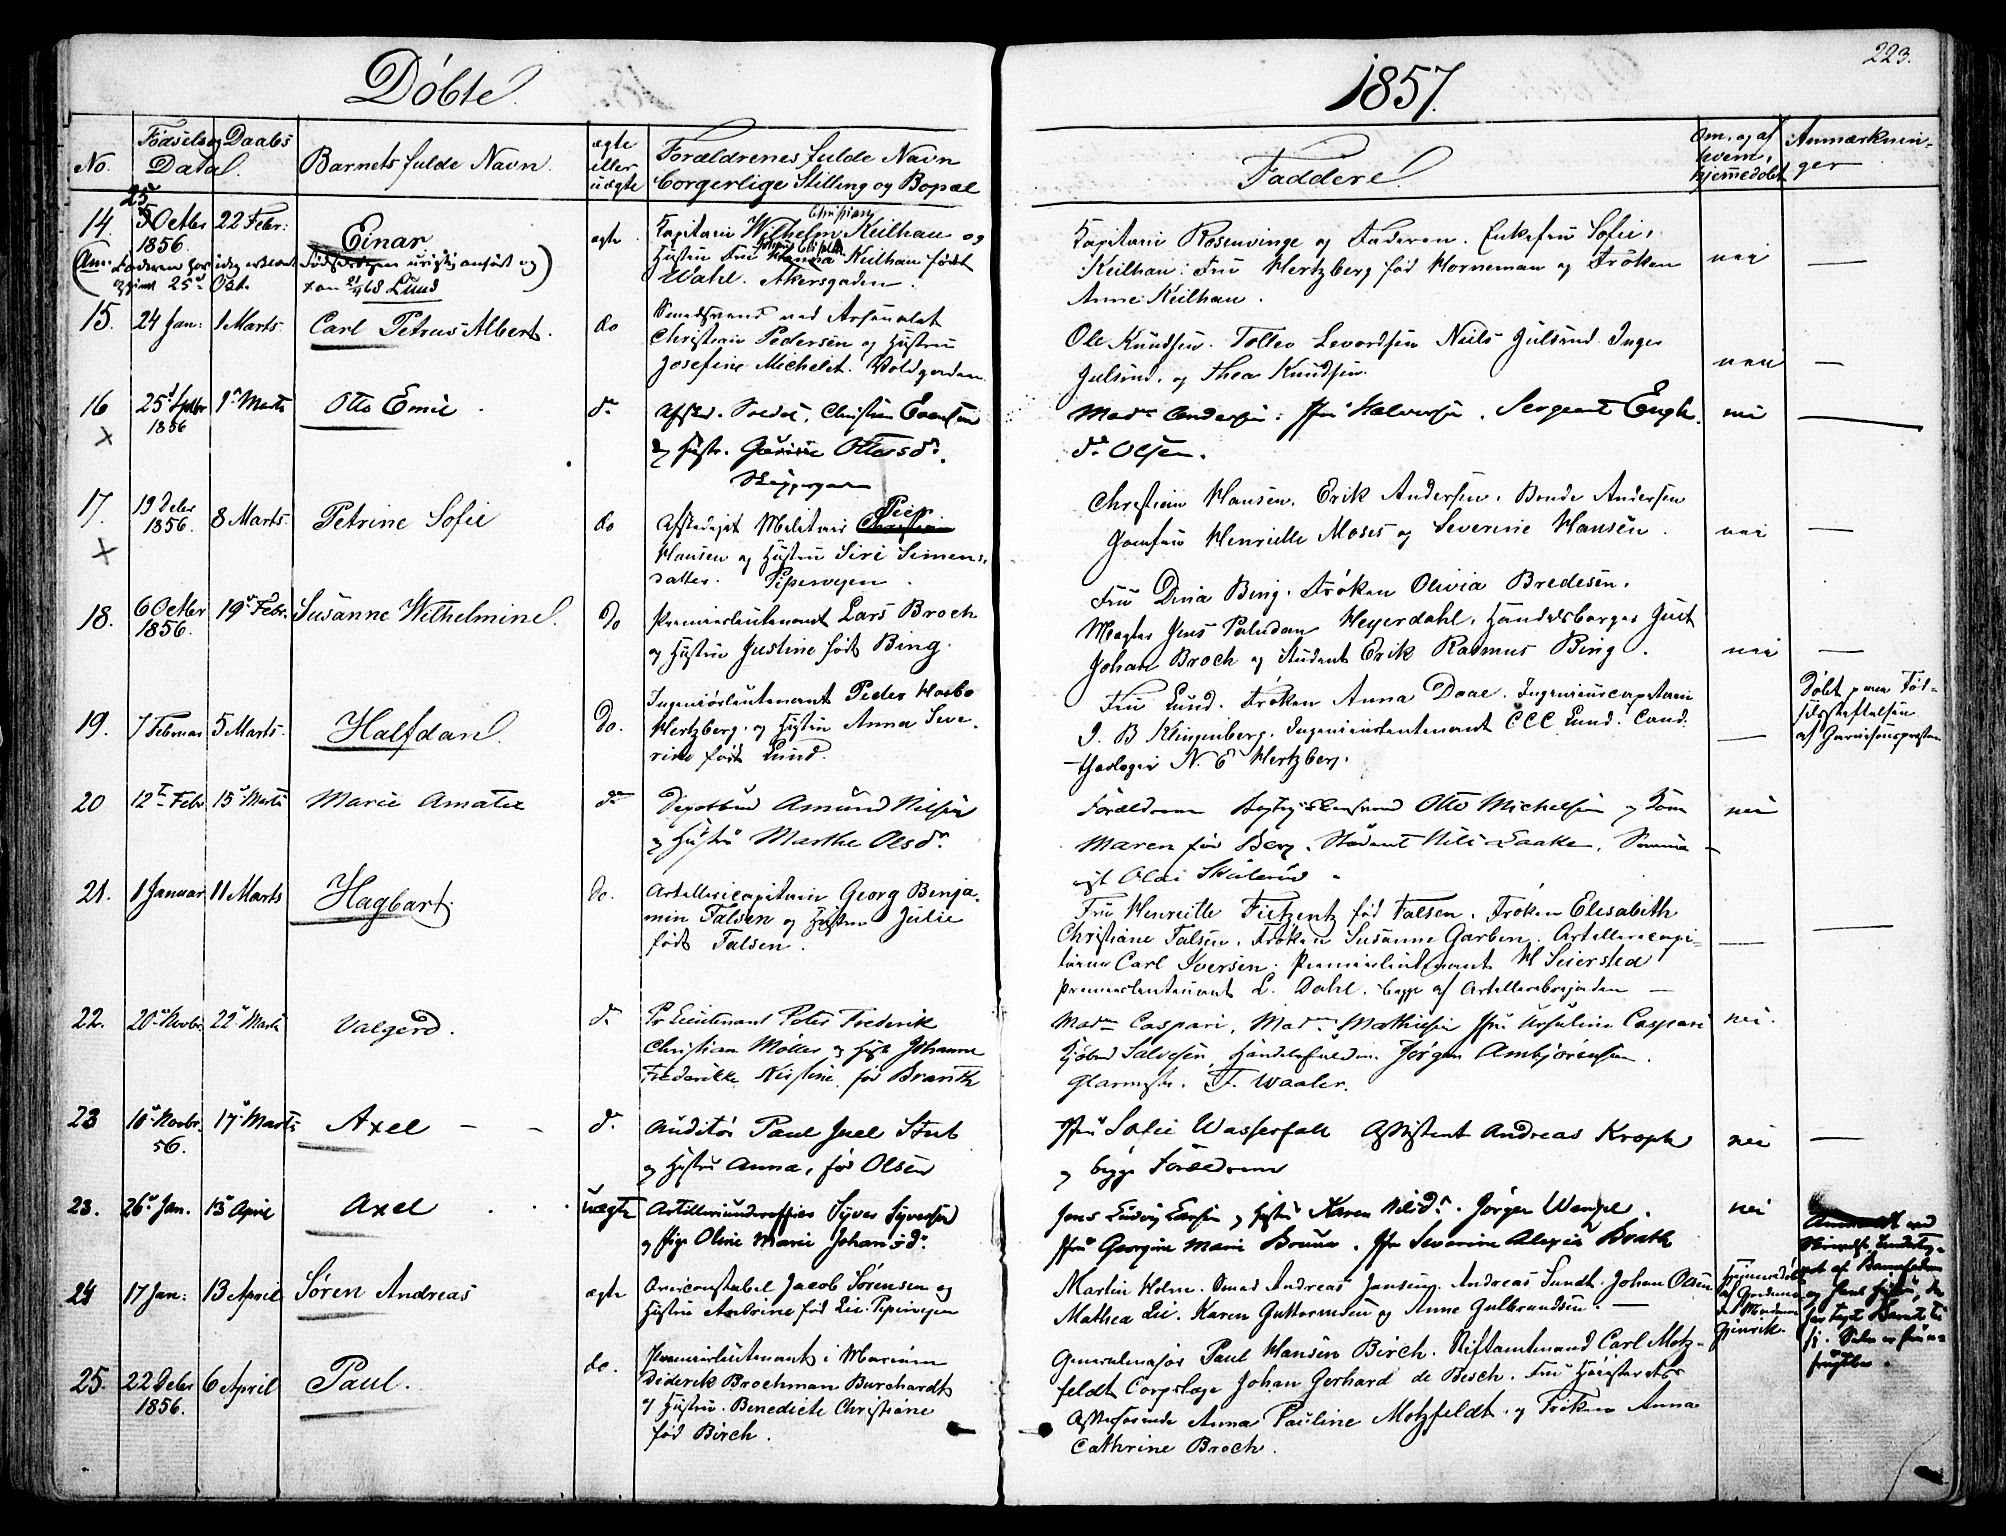 223.
Döbte. 1857.
No. Fødsels og Daabs Datal. Barnets fulde Navn. ægte eller uægte Forældrenes fulde Navn borgerlige Stilling og Bopæl Faddere. Om, og af hvem, hjemmedøbt Anmærkninger
14. 25 Octbr 1856. 22 Febr: Einar ægte Kapitain Wilhelm Christian Keilhau og
Hustru Fru Keilhau født
Wahl. Akersgaden.
Kapitain Rosenvinge og Faderen. Enkefru Sofie
Keilhau: Fru Hertzberg fød Horneman og Frøken
Anne Keilhau.
nei —
15. 24 Jan: 1 Marts. Carl Petrus Albert. do ved Arsenalet
Christian Pedersen og Hustru
Josefine Michelet. Voldgaden
Ole Knudsen. Tollev Levordsen Neils Julsrud. Inger
Julsrud. og Thea Knudsen.
nei —
16 25 Septbr 1856 1ste Marts Otto Emil. do Afsked. Soldat, Christian Evensen
og Hustr. Ottersdr.
Mad. Andersen: Jfru Halversen. Sergeant Engh.
do Olsen.
nei —
17. 19 Debr 1856. 8 Marts. Petrine Sofie do Afskediget Militair Peer
Hansen og Hustru Siri Simens-
datter. Pipervigen.
Christian Hansen. Erik Andersen. Bonde Andersen
Jomfru Henriette Moses og Severine Hansen.
nei —
18. 6 Octbr 1856. 19 Febr. Susanne Wilhelmine. do Premierlieutenant Lars Broch
og Hustru Justine født Bing.
Fru Dina Bing. Frøken Olivia Bredesen.
Mægler Jens Paludan Heyerdahl, Handelsborger Just
Johan Broch og Student Erik Rasmus Bing.
nei —
19. 7 Februar 5 Marts. Halfdan. do. Ingeniørlieutenant Peder Harbo
Hertzberg. og Hustru Anna Seve-
rine født Lund.
Fru Lund. Frøken Anna Daae. Ingenieurcapitain
J. B Klingenberg. Ingenieurlieutenant C C C Lund. Cand.
theologie N. E Hertzberg.
— Døbt paa Fød-
selsstiftelsen
af Garnisonspræsten
20 12te Febr 15 Marts Marie Amatie do Depotbud Amund Nilsen
og Hustru Marthe Olsdr.
Forældrene Otto Michelsen og Kone
Maren fød Berg. Student Nils Laake,
Olai
nei
21. 1 Januar 11 Marts Hagbart. do. Artillericapitain Georg Benja-
min Falsen og Hustru Julie
født Falsen.
Fru Henriette Fietzentz fød Falsen. Frøken Elisabeth
Christiane Falsen. Frøken Susanne Garben. Artillericapi-
tain Carl Iversen. Premierlieutenant H Seiersted
Premierlieutenant L. Dahl. begge af Artilleribrigaden —
22. 20 Novbr. 22 Marts Valgerd. do Pr Lieutenant Peter Frederik
Christian Møller og Hust Johanne
Frederikke Kirstine fød Brandt
Madm Caspari, Madm Mathiesen Jfru Ursuline Caspari
Kjøbmd Salvesen, Jørgen Ambjørensen.
Glarmestr. F. Waaler.
nei.
23 16 Novbr. 56. 17 Marts Axel — — do Auditør Paul Juel Stub
og Hustru Anna, fød Olsen
Jfru Sofie Wasserfall Assistent Andreas Kroph
og begge Forældrene
nei —
23. 26 Jan. 13 April Axel uægte Artilleriunderofficer Syver Syversen
og Pige Oline Marie Johansdr.
Jens Ludvig Larsen og Hustru Karen Nilsdr. Jørgen Wempe.
Jfru Georgine Marie Bruun. Jfr Severine Alexia Brath
nei
24 17 Jan: 13 April Søren Andreas ægte Overconstabel Jacob Sørensen og
Hustru Antrine fød Lie Pipervigen
Martin Holm. Smed Andreas Jansing. Andreas Sundt. Johan Olsen
Mathea Lie. Karen Guttormsen og Anne Gulbrandsen. —
Hjemmedøbt
25. 22 Debr 1856. 6 April Paul. do. Premierlieutenant i Marinen
Diderik Brochman Burchardt
og Hustru. Benedicte Christiane
fød Birch.
Generalmajor Paul Hansen Birch. Stiftamtmand Carl Motz-
feldt Corpslæge Johan Gerhard de Besch. Fru Høiesterets
Assessorinde Anna Pauline Motzfeldt. og Frøken Anna
Cathrine Broch.